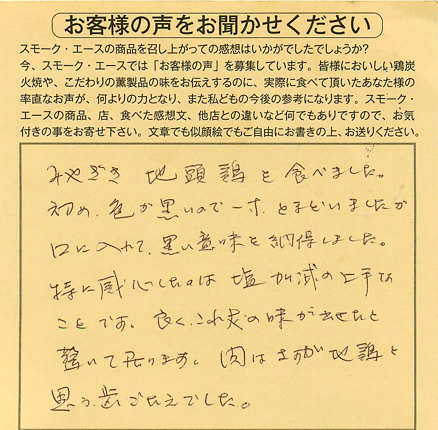 お客様の声をお聞かせください
スモーク・エースの商品を召し上がっての感想はいかがでしたでしょうか?
今、スモーク・エースでは「お客様の声」を募集しています。皆様においしい鶏炭
火焼や、こだわりの薫製品の味をお伝えするのに、実際に食べて頂いたあなた様の
率直なお声が、何よりの力となり、また私どもの今後の参考になります。スモーク・
エースの商品、店、食べた感想文、他店との違いなど何でもありですので、お気
付きの事をお寄せ下さい。文章でも似顔絵でもご自由にお書きの上、お送りください。
みやざき 地頭鶏を食べました。
初め、色が黒いので一寸、とまどいましたが
口に入れて、黒い意味を納得しました。
特に感心したのは 塩加減の上手な
ことです。良く、これ丈の味が出せたと
驚いて居ります。肉はさすが地鶏と
思う歯ごたえでした。